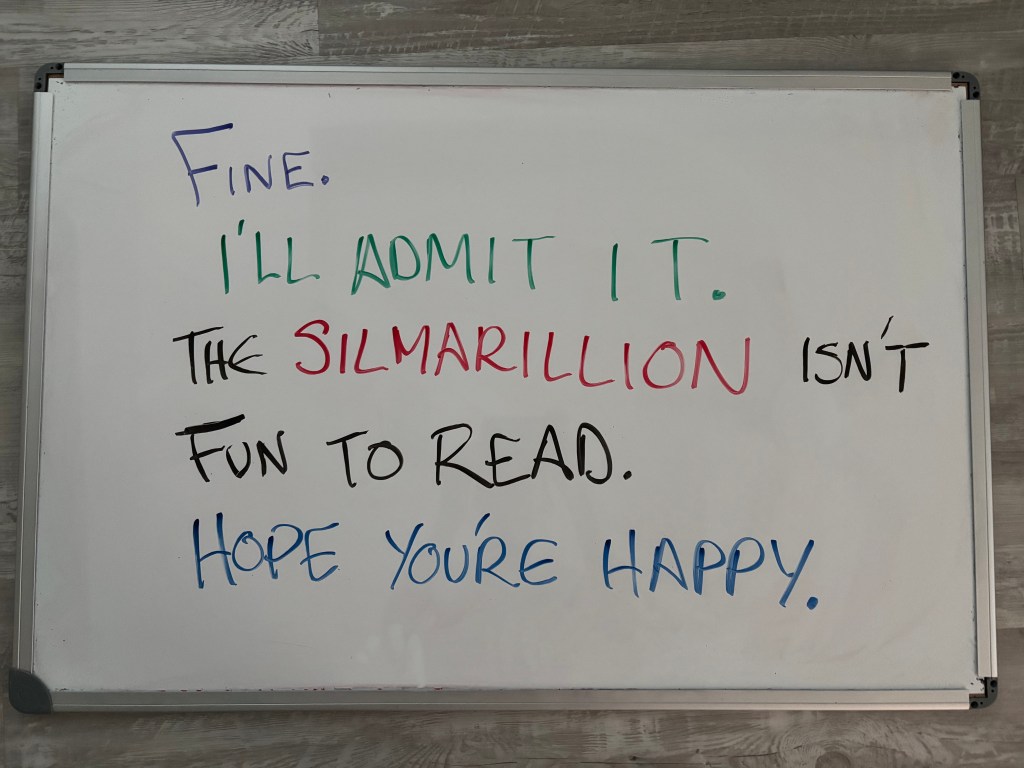 FINE.
I'LL ADMIT IT.
THE SILMARILLION ISN'T
FUN TO READ.
HOPE YOU'RE HAPPY.